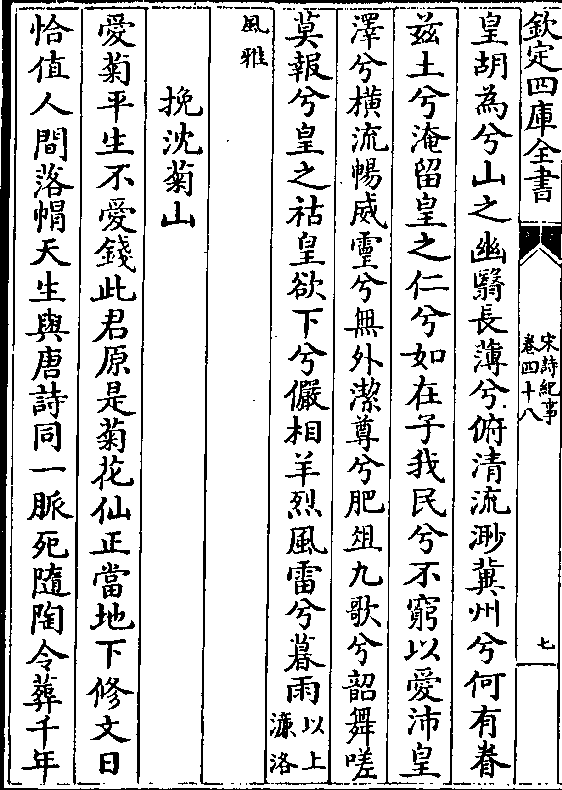 欽定四庫全書
宋詩紀事
卷四十八
七
皇胡為兮山之幽翳長薄兮俯清流渺冀州兮何有眷
兹土兮淹留皇之仁兮如在子我民兮不窮以愛沛皇
澤兮横流暢威靈兮無外潔尊兮肥俎九歌兮韶舞嗟
莫報兮皇之祜皇欲下兮儼相羊烈風雷兮暮雨以上濂洛
風雅
挽沈菊山
愛菊平生不愛錢此君原是菊花仙正當地下修文日
恰值人間落帽天生與唐詩同一脈死隨陶令葬千年